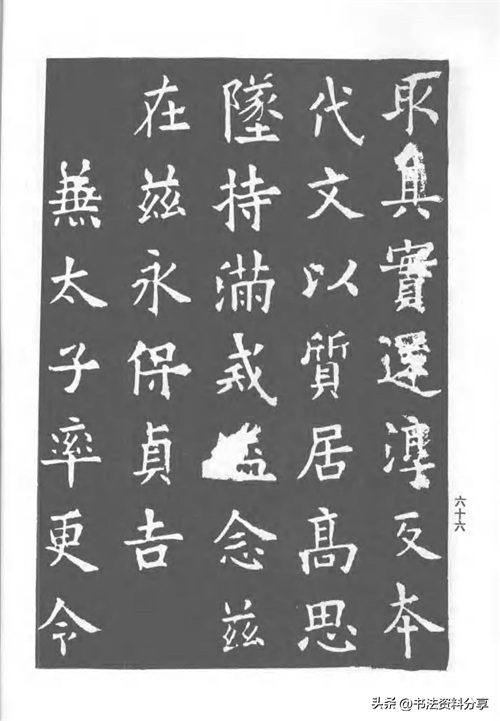 取其實還淳反本
代文以質居高思
墜持滿戒溢念茲
在茲永保貞吉
兼太子率更令
六十六
头条 @书法资料分享